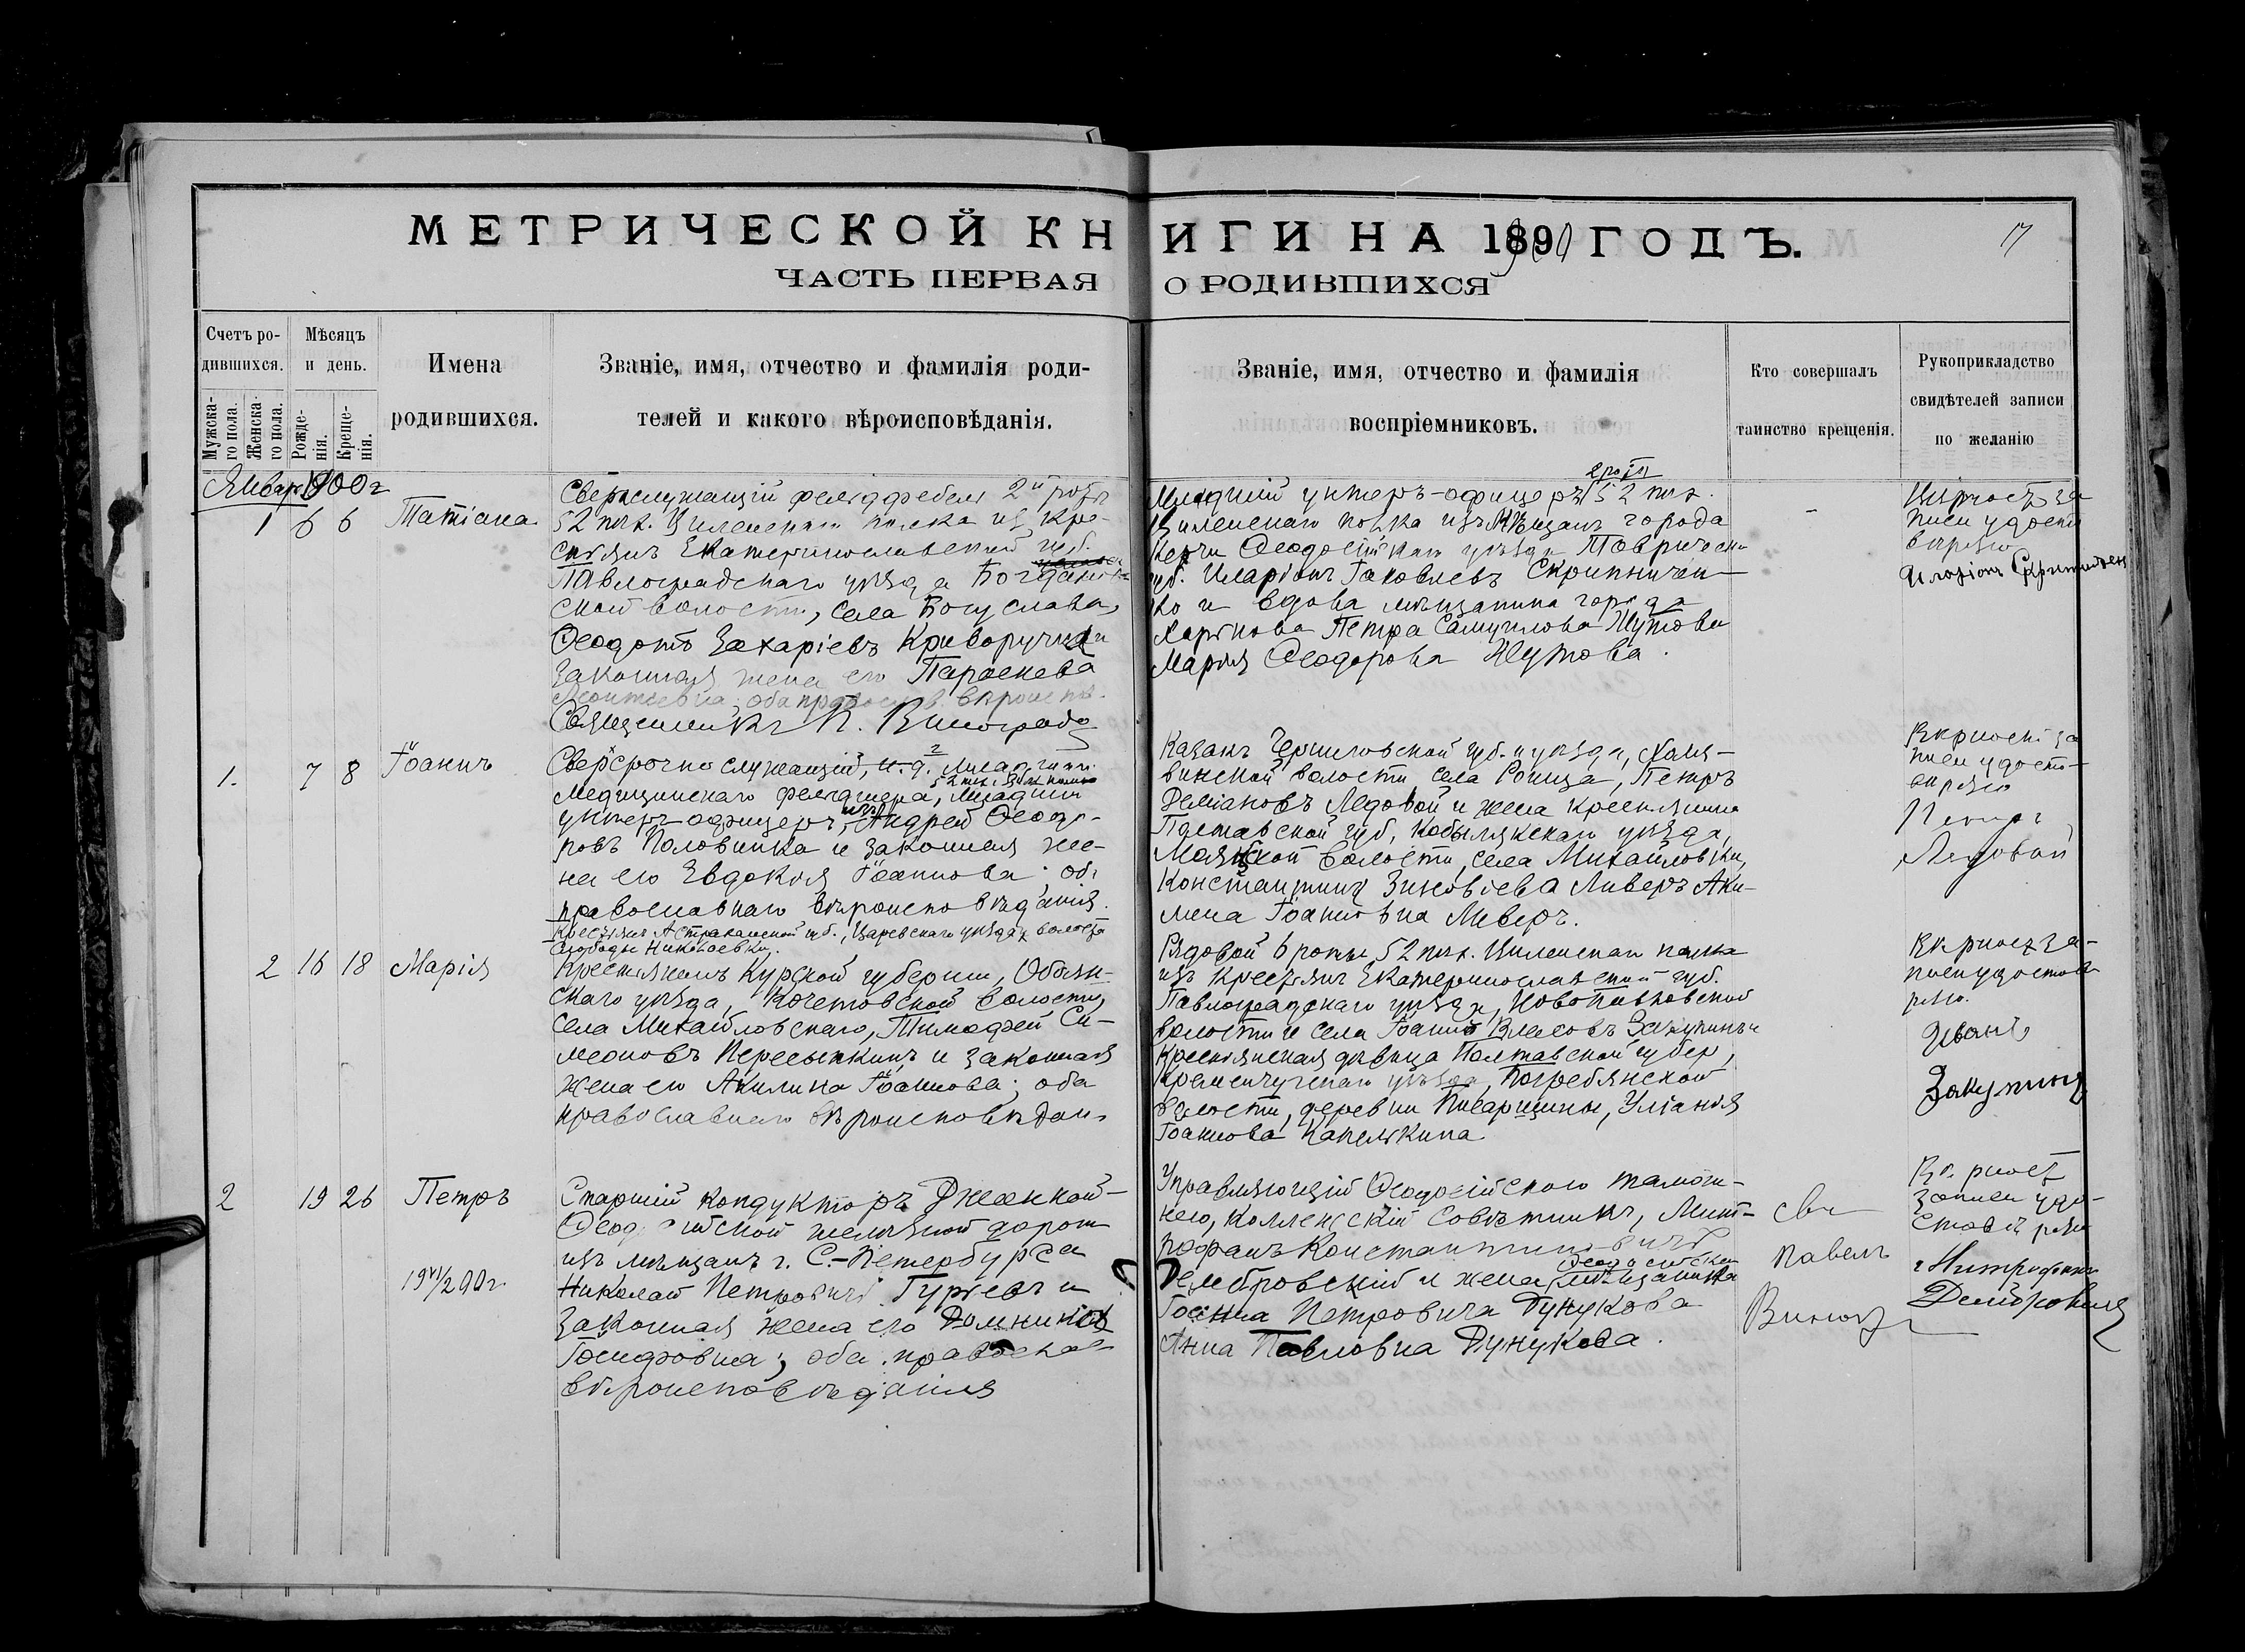 МЕТРИЧЕСКОЙ КНИГИ НА 1890 ГОДЪ.
900
17
ЧАСТЬ ПЕРВАЯ О РОДИВШИХСЯ
Счетъ ро-
дившихся.
Мужска-
го пола.
Женска-
го пола.
Мѣсяцъ
и день.
Рожде-
нія.
Креще-
нія.
Имена
родившихся.
Званіе, имя, отчество и фамилія роди-
телей и какого вѣроисповѣданія.
Званіе, имя, отчество и фамилія
воспріемниковъ.
Кто совершалъ
таинство крещенія.
Рукоприкладство
свидѣтелей записи
по желанію
Январь 1900 г
1 6 6 Татіана
Сверхслужащій фельдфебель 2й роты
52 пѣх. Виленскаго полка изъ кре-
стьянъ Екатеринославской губ.
Павлоградскаго уѣзда Богданов
ской волости, села Богуслава,
Ѳеодотъ Захаріевъ Криворучка и
законная жена его Параскева
Леонтьевна; оба правосл. вѣроисп.
Священникъ П. Виноградо
Младшій унтеръ-офицеръ 2 роты 52 пѣх.
Виленскаго полка изъ мѣщанъ города
Керчи Ѳеодосійскаго уѣзда Тавричес
губ. Иларіонъ Іаковлевъ Скрипничен-
ко и вдова мѣщанина города
Харькова Петра Самуилова Шутова
Марія Ѳеодорова Шутова.
1. 7 8 Іоаннъ
Сверхсрочно служащій, и. д. младшаго
медицинскаго фельдшера, младшій
унтеръ-офицеръ, Андрей Ѳеодо-
ровъ Половинка и законная же-
на его Евдокія Іоаннова; оба
православнаго вѣроисповѣданія.
Крестьян. Астраханской губ., Царевскаго уѣзда и волости
Слободы Николаевки.
Казакъ Черниговской губ. и уѣзда,
винской волости села Роища, Петръ
Деміановъ Ледовой и жена крестьянина
Полтавской губ, Кобылякскаго уѣзда,
Маячской волости, села Михайловки,
Константина Зиновіева Ливеръ Аки-
лина Іоанновна Ливеръ.
Вѣрность за
писи удосто-
вѣряю
Петръ
Ледовой
2 16 18 Марія
Крестьянинъ Курской губерніи, Обоян-
скаго уѣзда, Кочетовской волости,
села Михайловскаго, Тимофей Си-
меоновъ Пересыпкинъ и законная
жена его Акилина Іоаннова; оба
православнаго вѣроисповѣдан.
Рядовой 6 роты 52 пѣх. Виленскаго полка
изъ крестьянъ Екатеринославской губ.
Павлоградскаго уѣзда, Новопавловской
волости и села Іоаннъ Власовъ Закупинъ и
Крестьянская дѣвица Полтавской губер,
Кременчугскаго уѣзда, Погребянской
волости, деревни Писарщины, Уліанія
Іоаннова Капелькина.
Вѣрность за-
писи удостовѣ
ряю.
Иванъ
Закупинъ
2 19 26 Петръ
Старшій кондукторъ Джанкой-
Ѳеодосійской желѣзной дороги
изъ мѣщанъ г. С.-Петербурга
Николай Петровичъ Гурьевъ и
законная жена его Домникія
Іосифовна; оба православ
вѣроисповѣданія
Управляющій Ѳеодосійскою тамож-
нею, коллежскій совѣтникъ, Мит-
рофанъ Константиновичъ
Дембровскій и жена Ѳеодосійскаго мѣщанина
Іоанна Петровича Дунукова
Анна Павловна Дунукова.
Свя
Павелъ
Виногр
Вѣрность
записи удо-
стовѣряю
Митрофанъ
Дембровскій